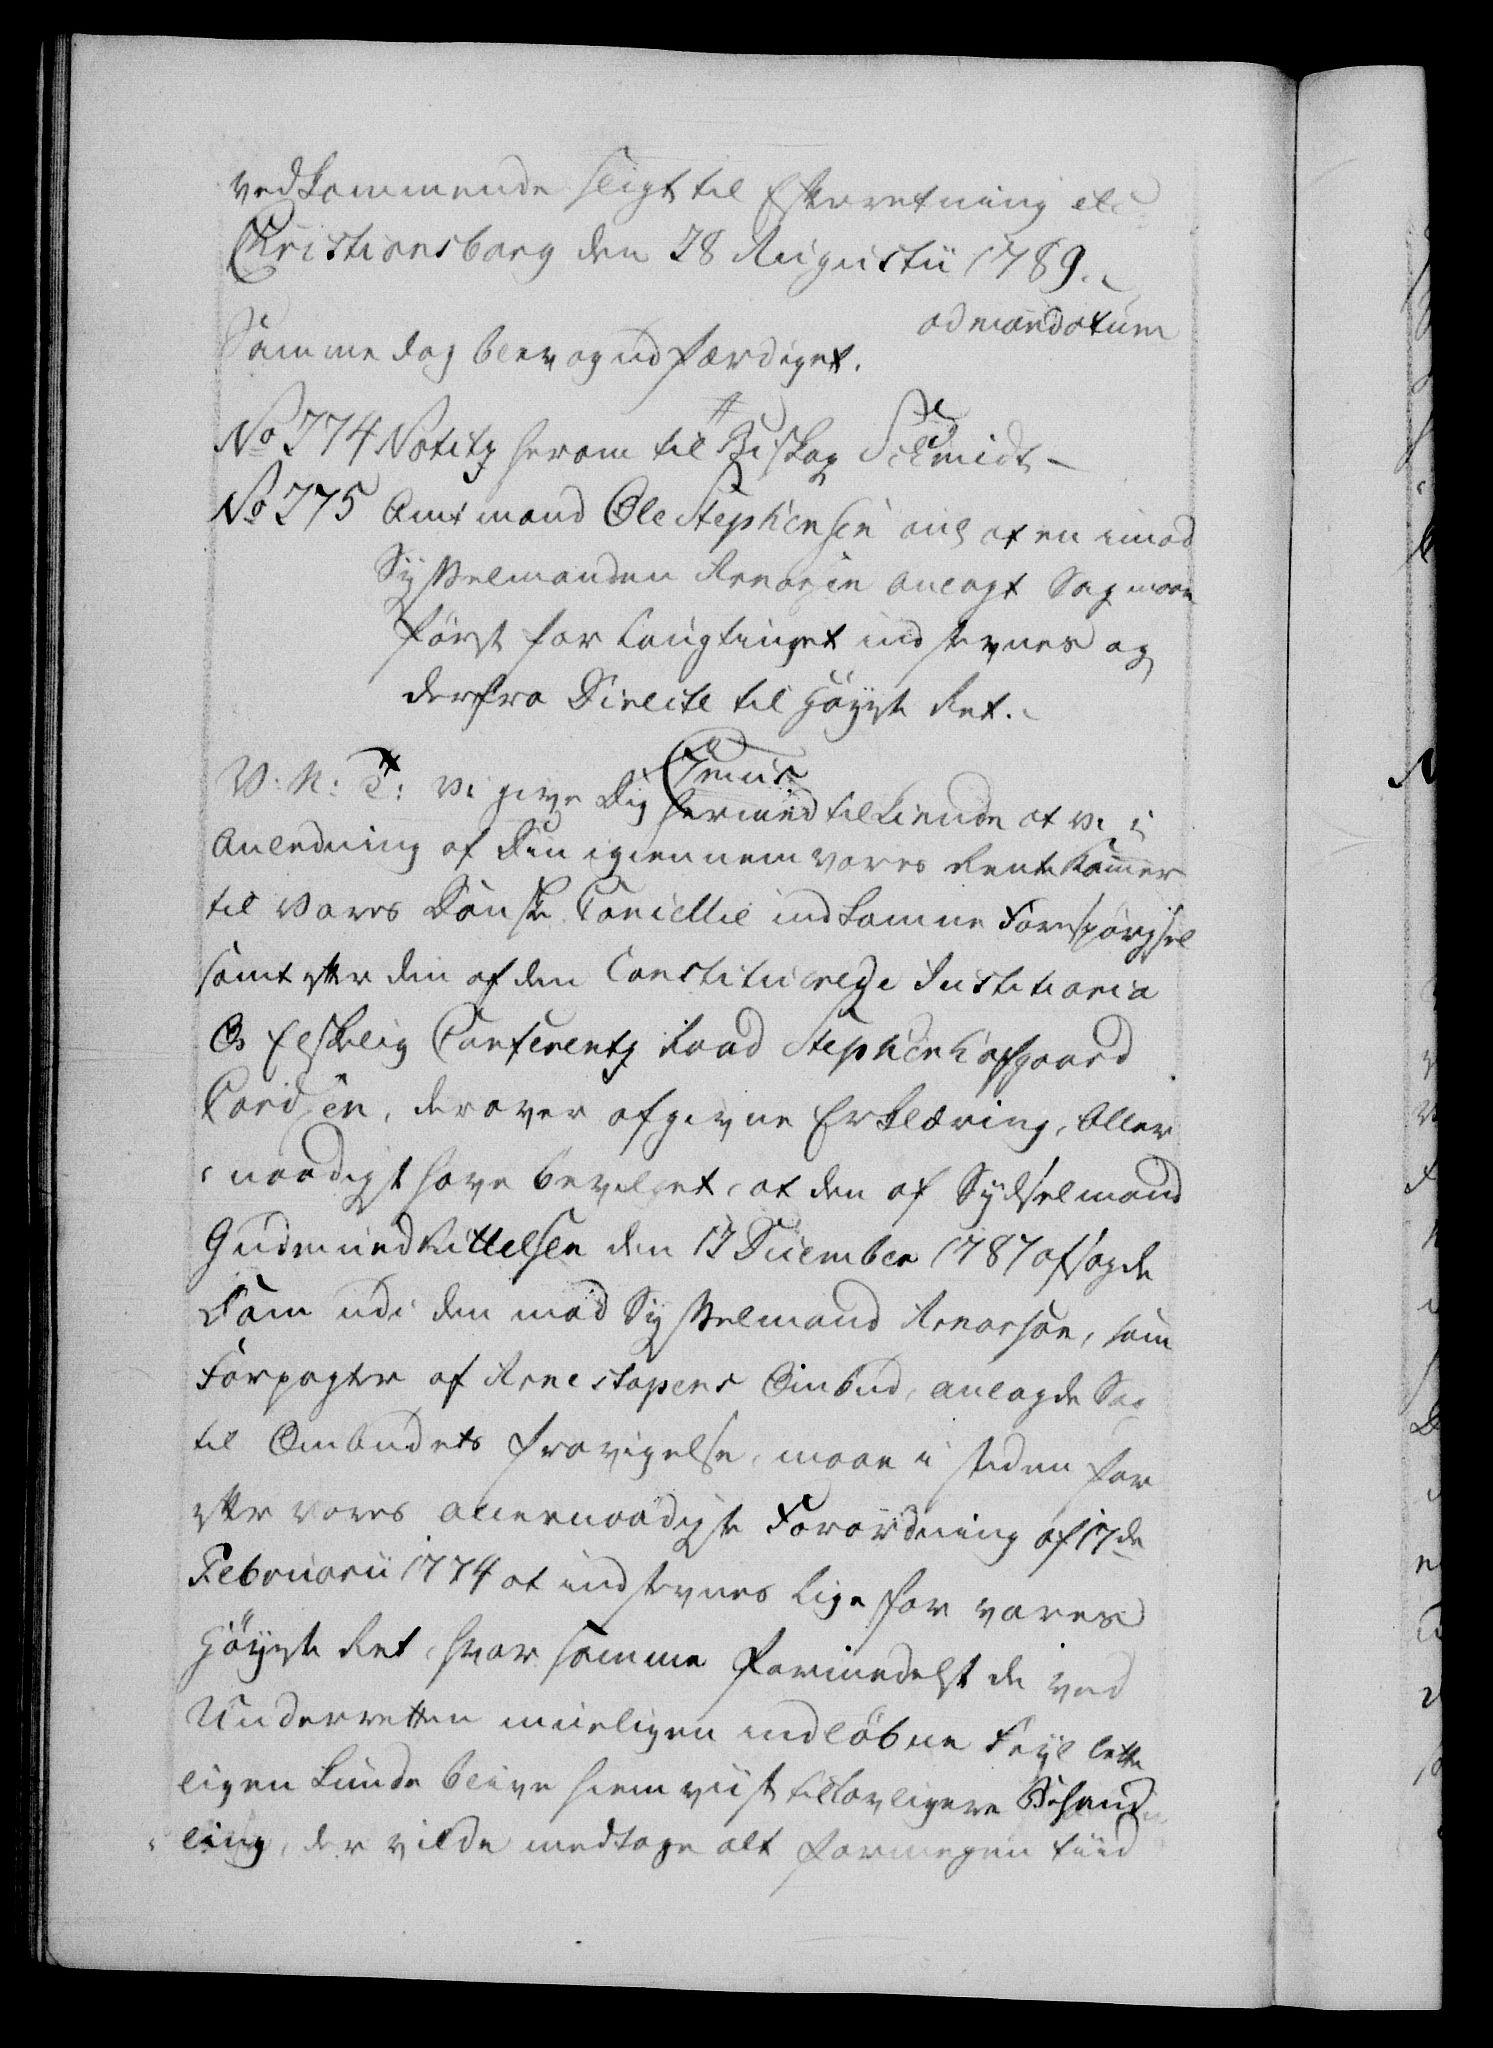 vedkommende sligt til Efterretning etc
Christiansborg den 28 Augustii 1789.
ad mandatum
Samme dag blev og udfærdiget.
No 274 Notitz herom til Biskop Schmidt
No 275 Amtmand Ole Stephensen anl at en imod
Sysselmanden Arnorsen anlagt Sag maa
først for Laugtinget indstevnes og
derfra Directe til Høyeste Ret.
V. N. T: Vi give Dig hermed tilkiende at Vi i
Anledning af Din igiennem vores Rente Kammer
til Vores Danske Cancellie indkomne Forespørgsel
samt efter den af den Constituerede Justitiario
Os Elskelig Conferentz Raad Stephen Hofgaard
Cordsen, derover afgivne Erklæring, Aller
naadigst have bevilget, at den af Sysselmand
Gudmund Kittelsen den 17 December 1787 afsagde
Dom udi den mod Sysselmand Arnorson, som
Forpagter af Arnestapens Ombud, anlagde Sag
til Ombudets fravigelse, maae i steden for
efter vores allernaadigste Forordning af 17de
Februarii 1774 at indstevnes lige for vores
Høyeste Ret, hvor samme formedelst de ved
Underretten mueligen indløbne Feyl lette
ligen kunde blive hiemviist til lovligere Behand
ling, der vilde medtage alt formegen tiid